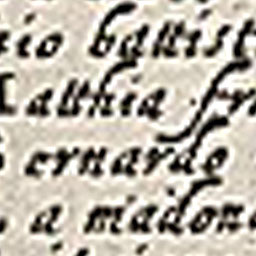 nio battist
Matthia fr
ernardo
a madon